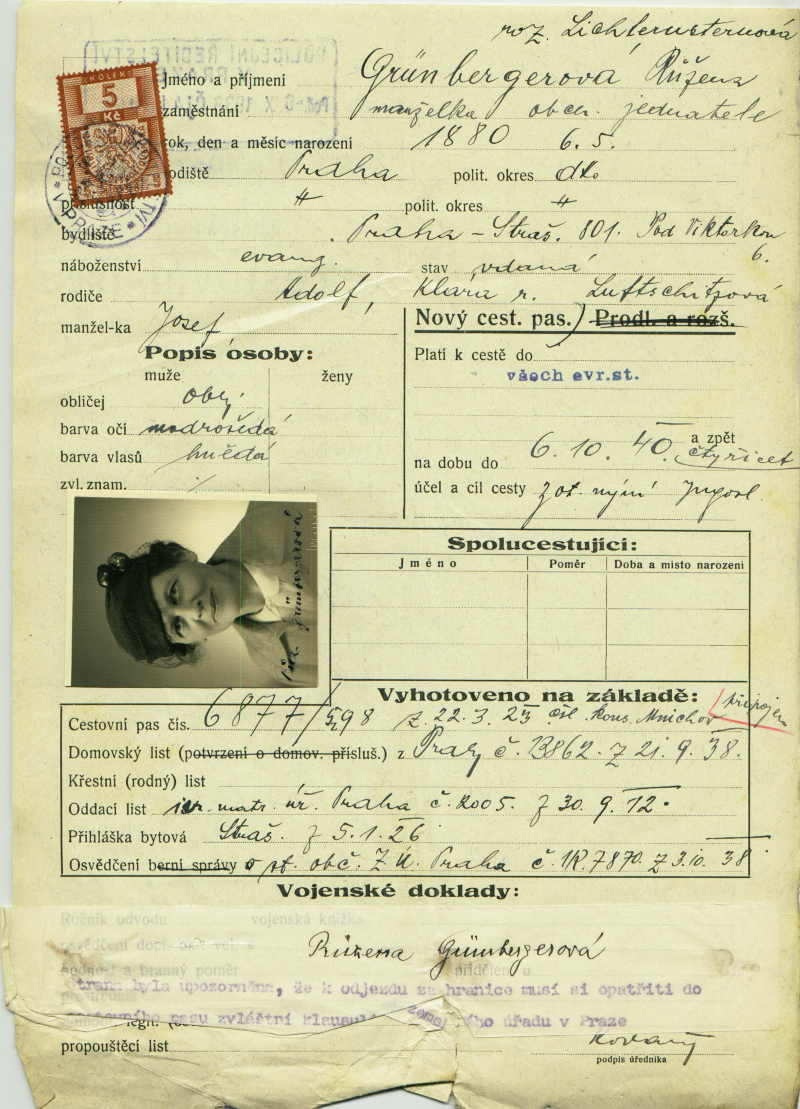 roz. Lichternsternová
POLICEJNÍ ŘEDITELSTVÍ
KOLEK
5
Kč
Jméno a příjmení Grünbergerová Růžena
zaměstnání manželka obch. jednatele
rok, den a měsíc narození 1880 6.5.
rodiště Praha polit. okres dto
příslušnost " polit. okres "
bydliště Praha – Straš. 801. Pod Viktorkou
6.
náboženství evang. stav vdaná
rodiče Adolf, Klára r. Luftschitzová
manžel-ka Josef
Nový cest. pas.) Prodl. a rozš.
Popis osoby:
muže ženy
obličej obl.
barva očí modrošedá
barva vlasů hnědá
zvl. znam. /
Platí k cestě do
všech evr.st.
na dobu do 6.10. 40. a zpět
čtyřicet
účel a cíl cesty zot. nyní Jugosl.
Spolucestující:
Jméno Poměr Doba a místo narození
Vyhotoveno na základě:
připojen
Cestovní pas čís. 6877/598 z 22.3.23 čsl. kons. Mnichov
Domovský list (potvrzení o domov. přísluš.) z Prahy č. 13862. z 21.9.38.
Křestní (rodný) list
Oddací list isr. matr. úř. Praha č. 2005. z 30.9.12.
Přihláška bytová Straš. z 5.1.26
Osvědčení berní správy o st. obč. Z.Ú. Praha č. 1R.7870. z 3.10.38
Vojenské doklady:
Ročník odvodu vojenská knížka
Růžena Grünbergerová
strana byla upozorněna, že k odjezdu za hranice musí si opatřiti do
cestovního pasu zvláštní klausuli zemského úřadu v Praze
propouštěcí list
podpis úředníka